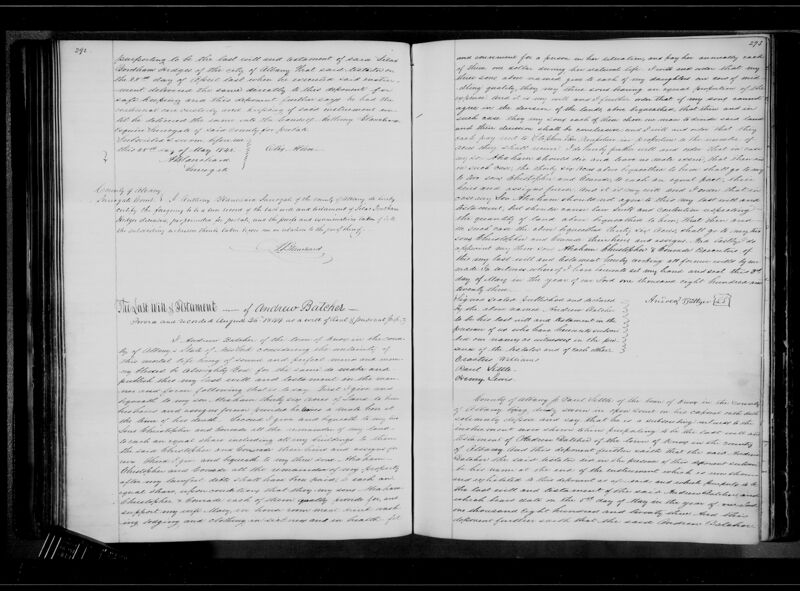 292
purporting to be the last will and testament of said Silas
Bordham Hedges of the city of Albany that said testator on
the 28th day of April last when he executed said instru-
ment delivered the same directly to this deponent for
safe keeping and this deponent further says he had the
continual custody and keeping of said instrument un-
til he delivered the same into the hands of Anthony Blanchard
Esquire Surrogate of said County for probate
Subscribed & sworn before me
this 28th day of May 1844
A Blanchard
Surrogate
County of Albany
Surrogate Court I Anthony Blanchard Surrogate of the county of Albany do hereby
certify the foregoing to be a true record of the last will and testament of Silas
Hedges deceased,
A Blanchard
The Last will & Testament of Andrew Batcher
Proved and recorded August 26th 1844 as a will of Real & personal
I Andrew Batcher of the town of Knox in the coun-
ty of Albany & State of New York considering the uncertainty of
this mortal life being of sound and perfect mind and mem-
ory blessed be Almighty God for the same do make and
publish this my last will and testament in the man-
ner and form following that is to say First I give and
bequeath to my son Abraham thirty six acres of land to him
his heirs and assigns forever provided he leaves a male heir at
the time of his death. Second I give and bequeath to my two
sons Christopher and Conrade all the remainder of my land
to each an equal share including all my buildings to them
the said Christopher and Conrade their heirs and assigns for
ever Third I give and bequeath to my three sons Abraham
Christopher and Conrade all the remainder of my property
after my lawful debts shall have been paid, to each an
equal share, upon conditions that they my sons Abraham
Christopher & Conrade each of them equally provide for and
support my wife Mary, in house room meat drink wash
ing lodging and clothing in sickness and in health fit
293
and convenient for a person in her situation, and pay her annually each
of them one dollar during her natural life I will and order that my
three sons above named give to each of my daughters one cow of mid
dling quality, they my three sons having an equal proportion of the
expense And it is my will and I further order that if my sons cannot
agree in the division of the lands above bequeathed that then and in
such case they my sons each of them chose one man to divide said land
and their decision shall be conclusive and I will and order that they
each pay rent to Stephen Van Rensselaer in proportion to the number of
acres they shall own I do hereby further will and order that in case
my son Abraham should die and leave no male issue, that then and
in such case, the thirty six acres above bequeathed to him shall go to my
two sons Christopher and Conrade, to each an equal part, their
heirs and assigns forever. And it is my will and I order that in
case my Son Abraham should not agree to this my last will and
testament, but should cause law suits and contention respecting
the quantity of land above bequeathed to him, that then and
in such case the above bequeathed thirty six acres, shall go to my
sons Christopher and Conrad their heirs and assigns. And lastly I do
appoint my three sons Abraham Christopher & Conrade Executors of
this my last will and testament hereby revoking all former wills by me
made In witness whereof I have hereunto set my hand and seal this
day of May in the year of our Lord one thousand eight hundred and
twenty three
Signed sealed published and declared
by the above named Andrew Batcher
to be his last will and testament in the
presence of us who have hereunto subscri
bed our names as witnesses in the pre-
sence of the testator and of each other
Erastus Williams
Paul Settle
Henry Lewis
Andrew LS
County of Albany ss Paul Settle of the town of Knox in the County
of Albany being duly sworn in open Court on his corporal oath doth
solemnly depose and say that he is a subscribing witness to the
instrument now shewn to him purporting to be the last will and
testament of Andrew Batcher of the town of Knox in the county
of Albany. And this deponent further saith that the said Andrew
Batcher the said testator did in the presence of this deponent subscribe
his name at the end of the instrument which is now shewn
and exhibited to this deponent as aforesaid and which purports to be
the last will and testament of the said Andrew Batcher and
which bears date on the day of May in the year of our Lord
one thousand eight hundred and twenty three And this
deponent further saith that the said Andrew Batcher